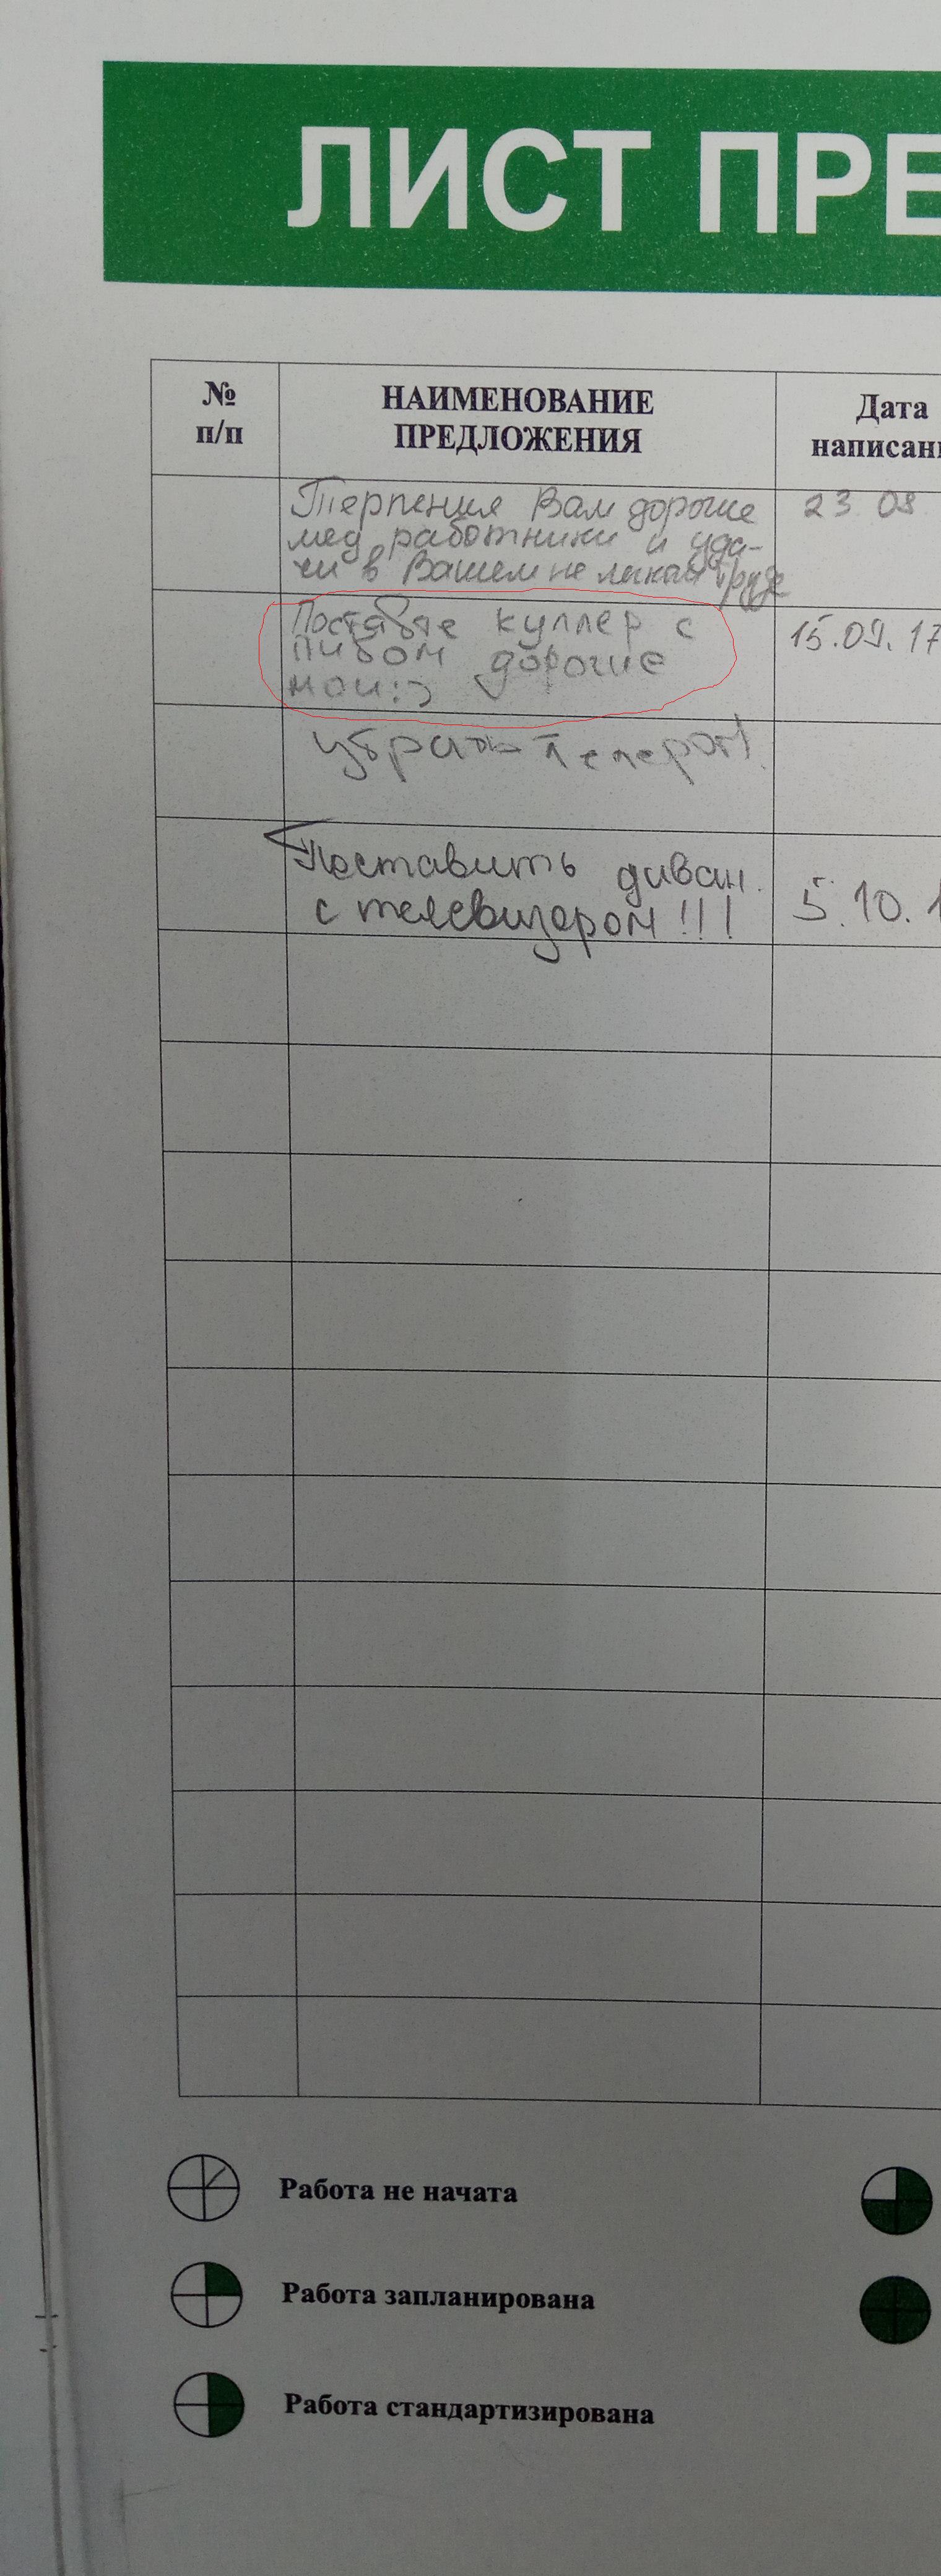 ЛИСТ ПРЕ
№
п/п
НАИМЕНОВАНИЕ
ПРЕДЛОЖЕНИЯ
Дата
написани
Терпения Вам дорогие
мед работники и уда-
чи в Вашем не легком труде
23 08
Поставте куллер с
пивом дорогие
мои:)
15.09.17
убрать
Поставить диван
с телевизором!!!
5.10.1
Работа не начата
Работа запланирована
Работа стандартизирована